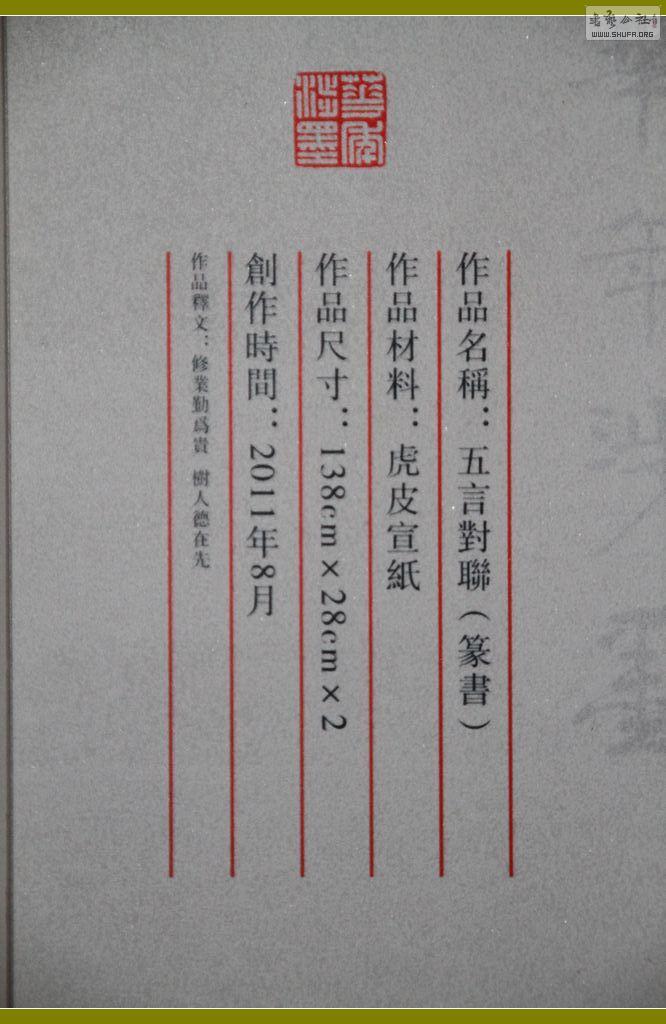 WWW.SHUFA.ORG
作品名稱：五言對聯（篆書）
作品材料：虎皮宣紙
作品尺寸：138cm×28cm×2
創作時間：2011年8月
作品釋文：修業勤爲貴 樹人德在先